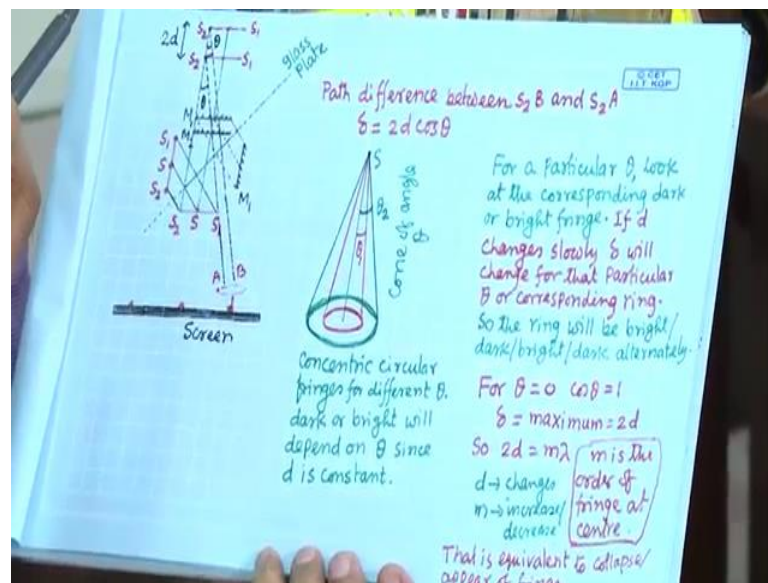 S2 S1
2d
θ
S2 S1
θ
glass
plate
M
M
M1
S1
S
S2
S2 S S1
A B
Screen
Q CET
I.I.T. KGP
Path difference between S2B and S2A
δ = 2d cosθ
S
θ2
Cone of angle
θ
Concentric circular
fringes for different θ.
dark or bright will
depend on θ since
d is constant.
For a Particular θ, Look
at the corresponding dark
or bright fringe. If d
changes slowly δ will
change for that Particular
θ or corresponding ring.
So the ring will be bright/
dark/bright/dark alternately.
For θ=0 cosθ=1
δ = maximum = 2d
So 2d = mλ
d → changes
m → increase/
decrease
m is the
order of
fringe at
centre.
That is equivalent to collapse/